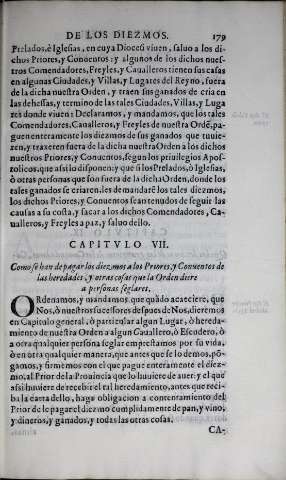 DE LOS DIEZMOS. 179
Prelados, ò Iglesias, en cuya Diocesi viuen, saluo a los di-
chos Priores, y Conuentos: y algunos de los dichos nues-
tros Comendadores, Freyles, y Caualleros tienen sus casas
en algunas Ciudades, y Villas, y Lugares del Reyno, fuera
de la dicha nuestra Orden, y traen sus ganados de cria en
las dehessas, y termino de las tales Ciudades, Villas, y Luga
res donde viuen: Declaramos, y mandamos, que los tales
Comendadores, Caualleros, y Freyles de nuestra Ordē, pa-
guen enteramente los diezmos de sus ganados que tuuie-
ren, y traxeren fuera de la dicha nuestra Orden a los dichos
nuestros Priores, y Conuentos, segun los priuilegios Apos-
tolicos, que assi lo disponen: y que si los Prelados, ò Iglesias,
ò otras personas que son fuera de la dicha Orden, donde los
tales ganados se criaren, les mandarē los tales diezmos,
los dichos Priores, y Conuentos sean tenudos de seguir las
causas a su costa, y sacar a los dichos Comendadores, Ca-
ualleros, y Freyles a paz, y saluo dello.
CAPITVLO VII.
Como se han de pagar los diezmos a los Priores, y Conuentos de
las heredades, y otras cosas que la Orden diere
a personas seglares.
ORdenamos, y mandamos, que quādo acaeciere, que
Nos, ò nuestros sucessores despues de Nos, dieremos
en Capitulo general, ò particular algun Lugar, ò hereda-
miento de nuestra Orden a algun Cauallero, ò Escudero, ò
a otra qualquier persona seglar emprestamos por su vida,
ò en otra qualquier manera, que antes que se lo demos, pō-
gamos, y firmemos con el que pague enteramente el diez-
mo, al Prior de la Prouincia que lo huuiere de auer: y el que
assi huuiere de recebir el tal heredamiento, antes que reci-
ba la carta dello, haga obligacion a contentamiento del
Prior de le pagar el diezmo cumplidamente de pan, y vino,
y dineros, y ganados, y todas las otras cosas.
CA-